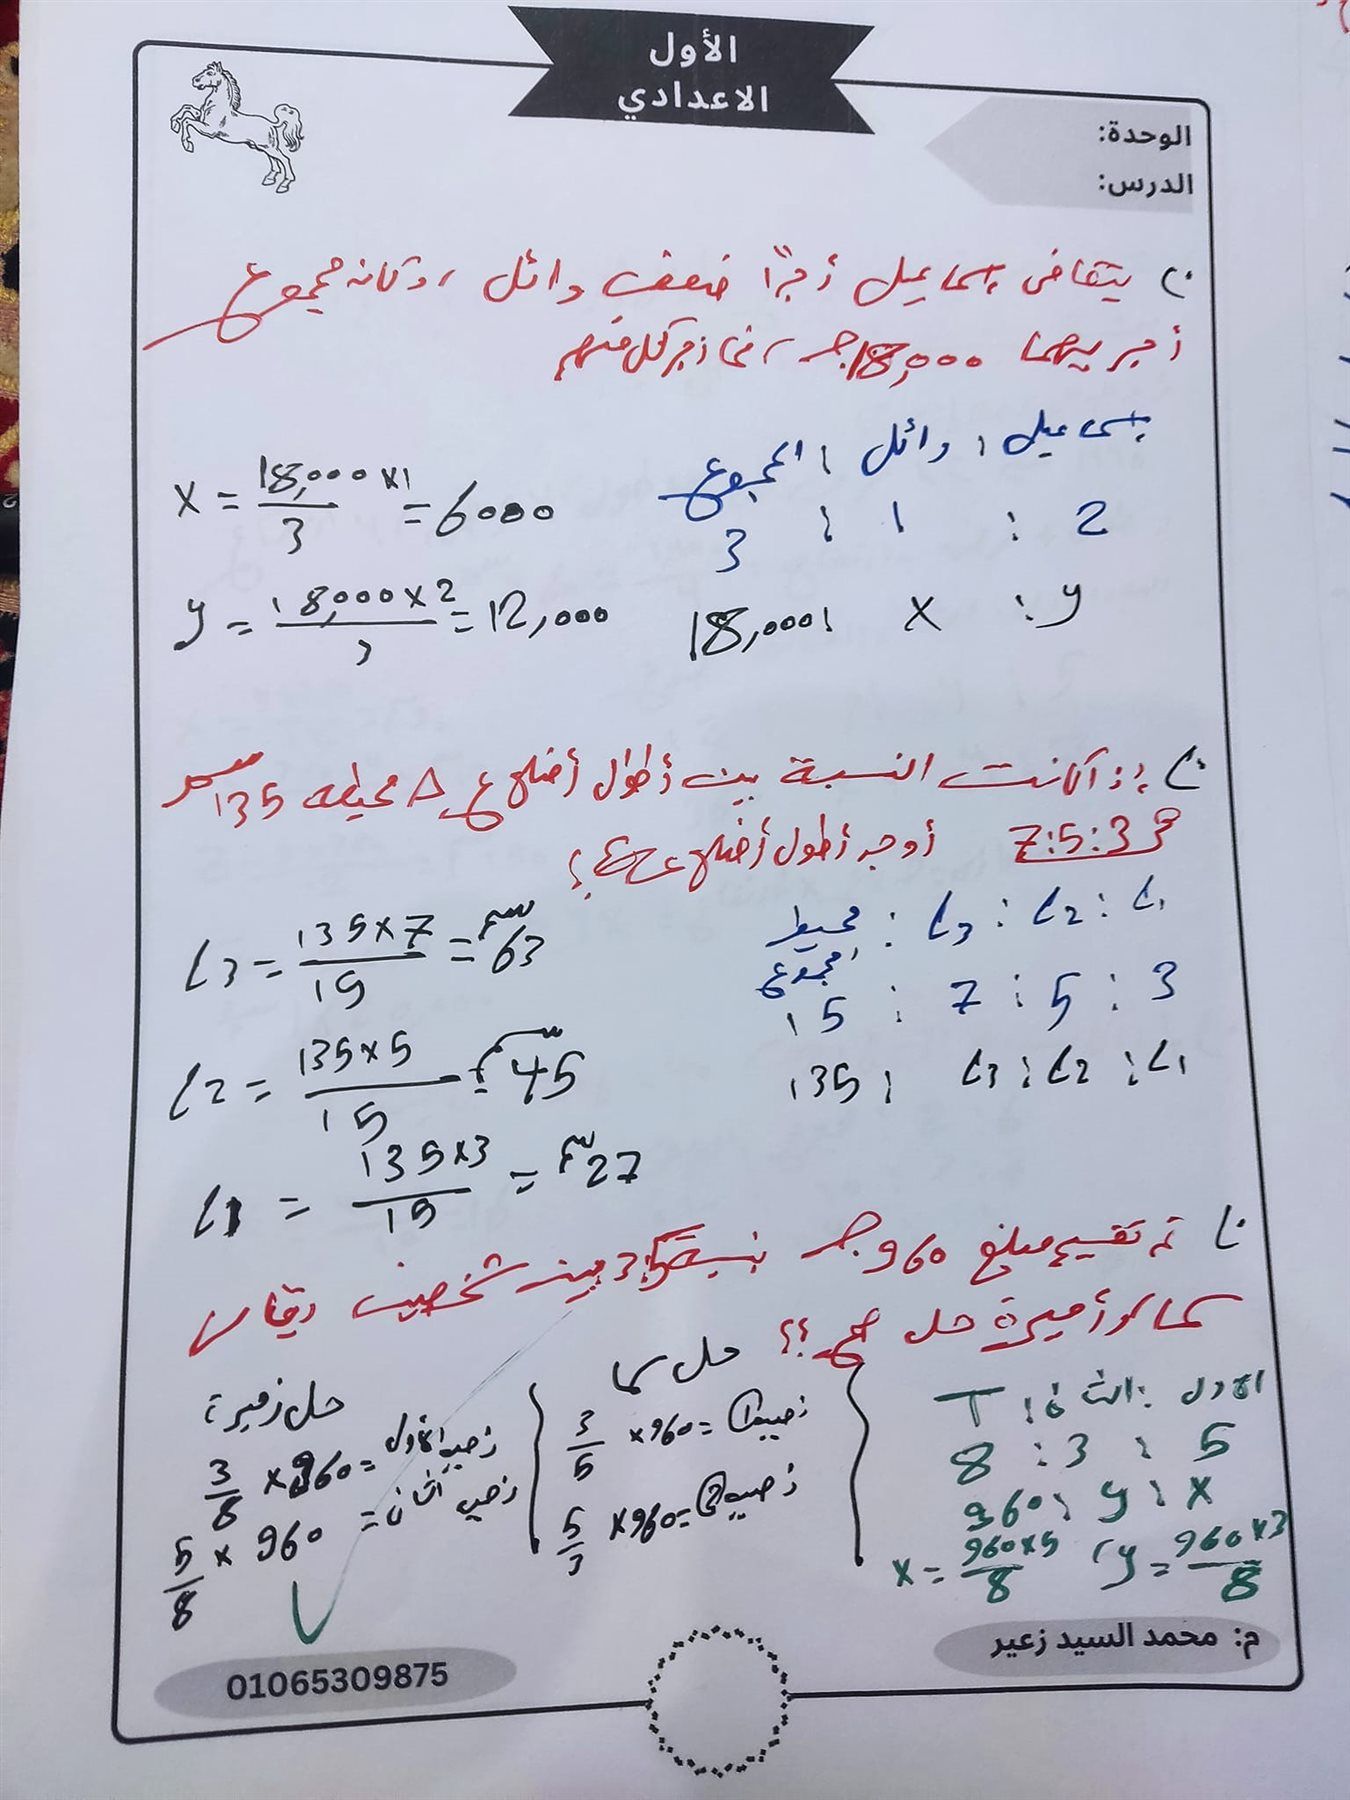 الأول
الاعدادي
الوحدة:
الدرس:
يتقاضى إسماعيل أجرًا ضعف وائل، وكان مجموع
أجريهما 18,000 جـ، فما أجر كل منهم
إسماعيل : وائل : المجموع
2 : 1 : 3
y : x : 18,000
x = 18,000 × 1 / 3 = 6000
y = 18,000 × 2 / 3 = 12,000
إذا كانت النسبة بين أطوال أضلاع Δ محيطه 135 سم
7:5:3 أوجد أطوال أضلاع
ل1 : ل2 : ل3 : محيط
مجموع
3 : 5 : 7 : 15
ل1 : ل2 : ل3 : 135
ل3 = 135×7 / 15 = 63 سم
ل2 = 135×5 / 15 = 45 سم
ل1 = 135×3 / 15 = 27 سم
تم تقسيم مبلغ 960 جـ بنسبة 3 بين شخصين
سما أو أميرة حل صح ؟؟
الأول : الثاني : T
5 : 3 : 8
x : y : 960
x = 960×5 / 8 ، y = 960×3 / 8
حل سما
نصيب 1 = 960 × 3/5
نصيب 2 = 960 × 5/3
حل
نصيب الأول = 960 × 3/8
نصيب الثاني = 960 × 5/8
م: محمد السيد زعير
01065309875